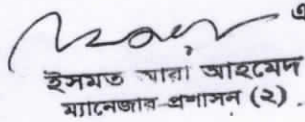 ইসমত আরা আহমেদ
ম্যানেজার প্রশাসন (২)